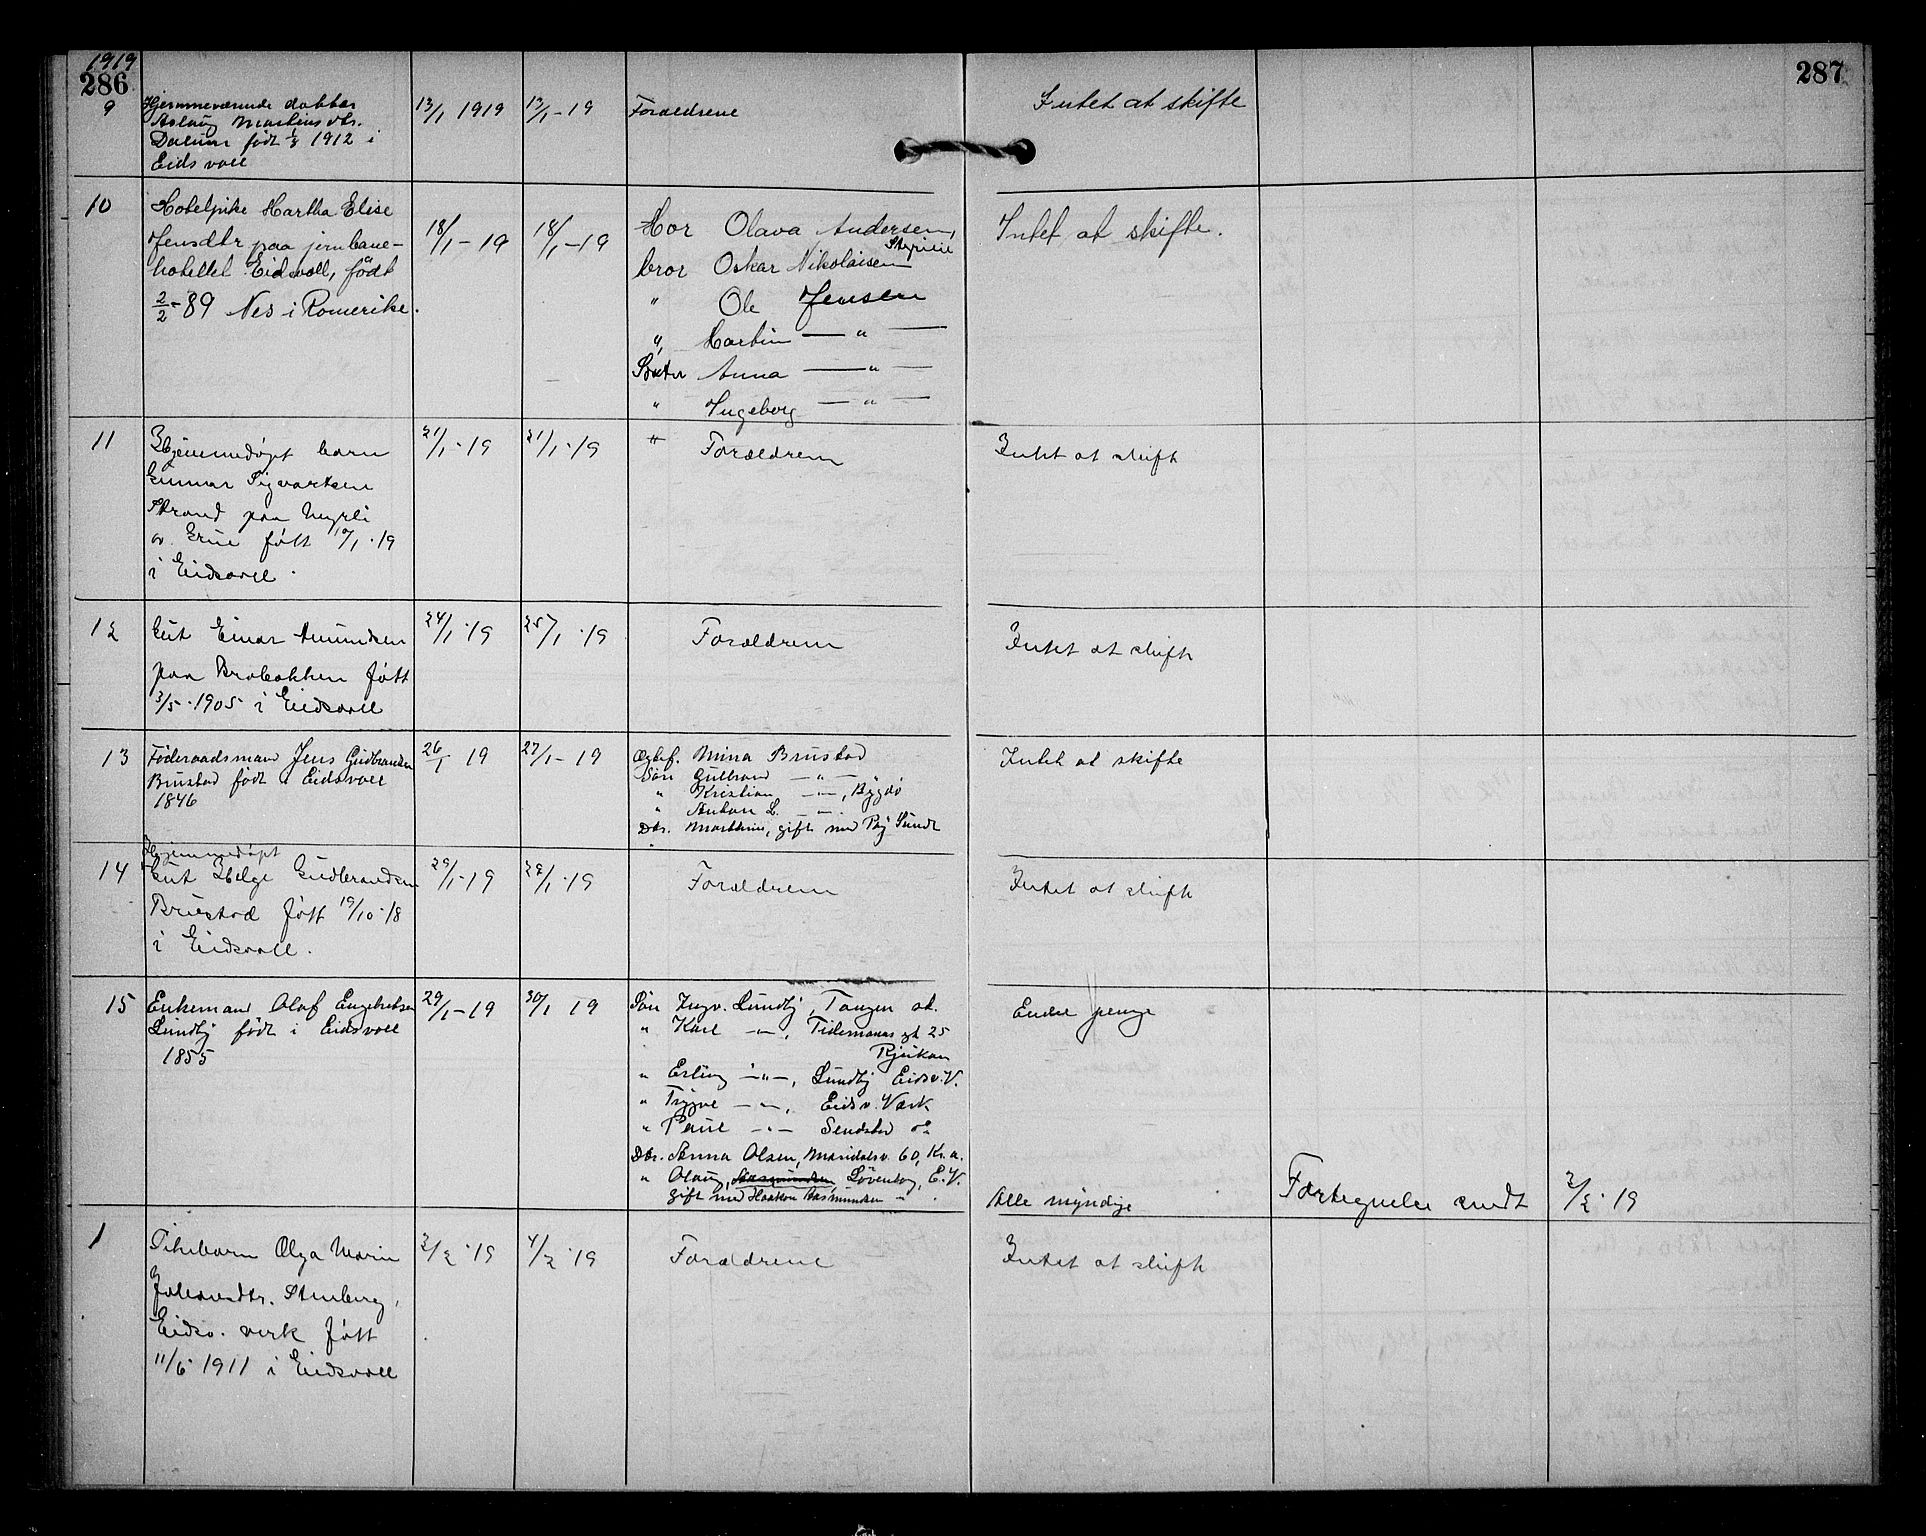 1919
286
287
9
Hjemmeværende datter
Aslaug Martinsdtr.
Dalum født 1912 i
Eidsvoll
13/1 1919
13/1 - 19
Forældrene
Intet at skifte
10
Hotelpike Martha Elise
Jensdtr paa jernbane-
hotellet Eidsvoll, født
2/2 - 89 Nes i Romerike.
18/1 - 19
18/1 - 19
Mor Olava Andersen,
bror Oskar Nikolaisen
" Ole Jensen
" Martin — " —
Søster Anna — " —
" Ingeborg — " —
Intet at skifte.
11
Hjemmedøpt barn
Gunnar Sigvartsen
Strand paa Myrli
født 10/1 - 19
i Eidsvoll.
21/1 - 19
21/1 - 19
" Forældrene
Intet at skifte
12
Gut Einar Amundsen
paa Brobakken født
3/5 - 1905 i Eidsvoll
24/1 - 19
25/1 - 19
Forældrene
Intet at skifte
13
Føderaadsmand Jens Gudbrandsen
Brustad født i Eidsvoll
1846
26/1 19
27/1 - 19
Egtef. Mina Brustad
Søn Gulbrand — " —
" Kristian — " —, Bygdø
" Anton L. — " —
Dtr. Marthine, gift med Sundt
Intet at skifte
14
Hjemmedøpt
Gut Helge Gudbrandsen
Brustad født 19/10 - 18
i Eidsvoll.
29/1 - 19
29/1 - 19
Forældrene
Intet at skifte
15
Enkemand Olaf Engebretsen
Lundby født i Eidsvoll
1855
29/1 - 19
30/1 19
Søn Ingv. Lundby, Tangen st.
" Karl — " —, Tidemans gt 25
Rjukan
" Erling — " —, Lundby Eidsv. V.
" Trygve — " —, Eidsv. Værk
" Paul — " — Sendstad
Dtr. Anna Olsen, Maridalsv. 60, Kr.a.
" Olaug, Rasmundsen Løvenborg, E.V.
gift med Haakon Rasmundsen "
Endel penge
Alle myndige
Fortegnelse sendt
2/2 - 19
1
Pikebarn Olga Marie
Johansdtr. Stenberg,
Eidsv. verk født
11/6 1911 i Eidsvoll
2/2 - 19
4/2 - 19
Forældrene
Intet at skifte